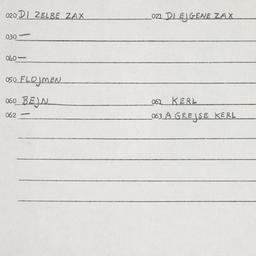 020 DI ZELBE ZAX 021 DI EJGENE ZAX
030 —
040 —
050 FLOJMEN
060 BEJN 061 KERL
062 — 063 A GREJSE KERL